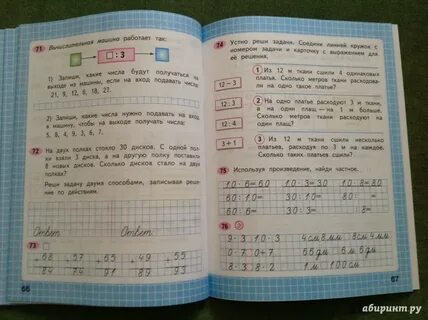 71 Вычислительная машина работает так:
□ : 3
1) Запиши, какие числа будут получаться на
выходе из машины, если на вход подавать числа:
21, 9, 12, 6, 18, 27.
2) Запиши, какие числа нужно подавать на вход
в машину, чтобы на выходе получать числа:
5, 8, 4, 9, 3, 6, 7.
72 На двух полках стояло 30 дисков. С одной пол-
ки взяли 3 диска, а на другую полку поставили
8 новых дисков. Сколько дисков стало на двух
полках?
Реши задачу двумя способами, записывая реше-
ние по действиям.
Ответ
Ответ
73
+68 +57 +55 +49 +55
84 74 91 89 93
66
74 Устно реши задачи. Соедини линией кружок с
номером задачи и карточку с выражением для
её решения.
12 − 3
12 : 3
12 : 4
3 + 1
1 Из 12 м ткани сшили 4 одинаковых
платья. Сколько метров ткани расходова-
ли на одно такое платье?
2 На одно платье расходуют 3 м ткани,
а на один плащ — на 1 м больше.
Сколько метров ткани расходуют на
один плащ?
3 Из 12 м ткани сшили несколько
платьев, расходуя по 3 м на каждое.
Сколько таких платьев сшили?
75 Используя произведение, найди частное.
10·6=60 10·3=30 10·8=80
60:10= 30:10= 80:10=
60:6= 30:3= 80:8=
76
9·3 10·3 4см8мм 8см4мм
0·7 0+7
8·3 8·2 1м 100см
67
абиринт.ру